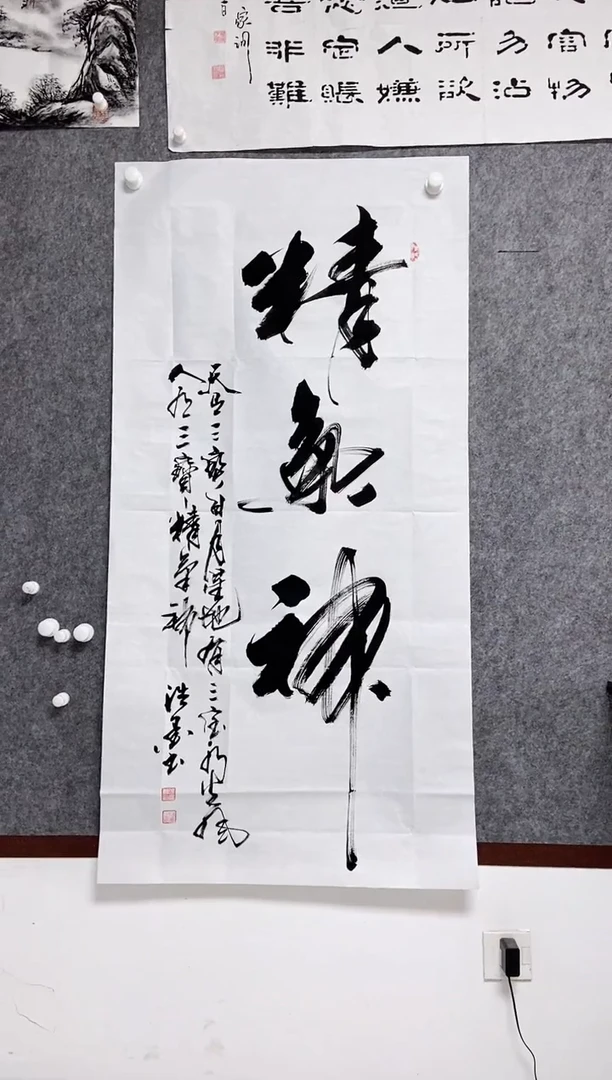 官物
勿沾
所欲
人嫌
定賬
非難
家训
精氣神
天有三寶日月星地有三宝水火風
人有三寶精氣神
浩墨书